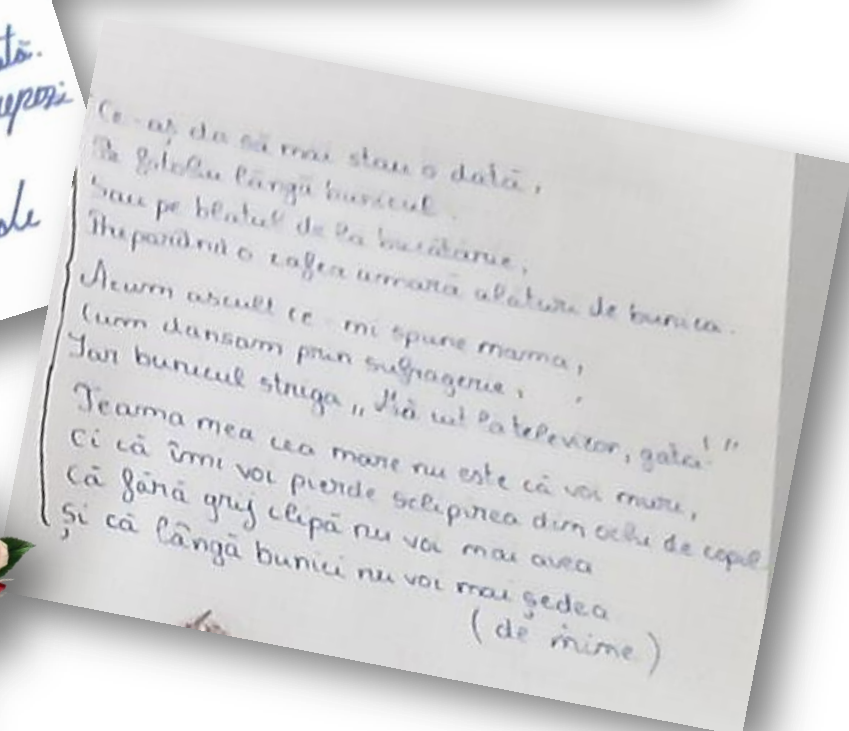 tă.
Ce-aș da să mai stau o dată,
Pe fotoliu lângă bunicul.
Sau pe blatul de la bucătărie,
Preparând o cafea amară alături de bunica.
Acum ascult ce-mi spune mama,
Cum dansam prin sufragerie,
Iar bunicul striga „Mă uit la televizor, gata!"
Teama mea cea mare nu este că voi muri,
Ci că îmi voi pierde sclipirea din ochi de copil
Că fără grij clipă nu voi mai avea
Și că lângă bunici nu voi mai ședea
(de mime)